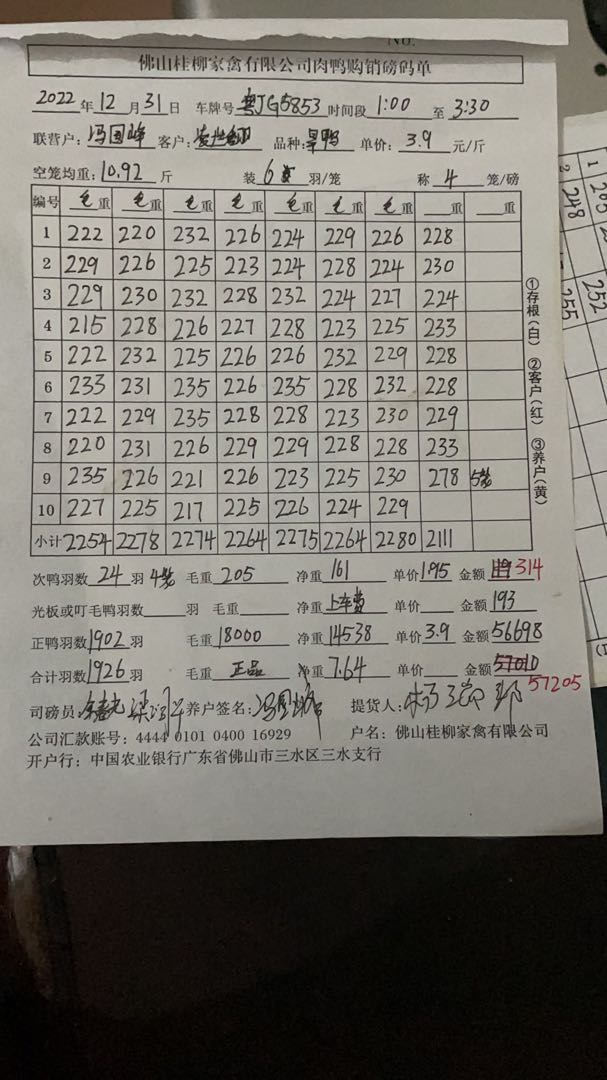 No.
佛山桂柳家禽有限公司肉鸭购销磅码单
2022年12月31日 车牌号粤JG5853时间段1:00至3:30
联营户:冯国峰 客户: 品种:旱鸭 单价:3.9元/斤
空笼均重:10.92斤 装6羽/笼 称4笼/磅
编号 毛重 毛重 毛重 毛重 毛重 毛重 毛重 重 重
1 222 220 232 226 224 229 226 228
2 229 226 225 223 224 228 224 230
3 229 230 232 228 232 224 227 224
4 215 228 226 227 228 223 225 233
5 222 232 225 226 226 232 229 228
6 233 231 235 226 235 228 232 228
7 222 229 235 228 228 223 230 229
8 220 231 226 229 229 228 228 233
9 235 226 221 226 223 225 230 278 5笼
10 227 225 217 225 226 224 229
小计 2254 2278 2274 2264 2275 2264 2280 2111
①存根(白) ②客户(红) ③养户(黄)
次鸭羽数24羽4笼 毛重205 净重161 单价1.95 金额314
光板或叮毛鸭羽数 羽 毛重 净重上车费 单价 金额193
正鸭羽数1902羽 毛重18000 净重14538 单价3.9 金额56698
合计羽数1926羽 毛重正品 净重7.64 单价 金额57010 57205
司磅员: 养户签名:冯国峰 提货人:
公司汇款账号:4444 0101 0400 16929 户名:佛山桂柳家禽有限公司
开户行:中国农业银行广东省佛山市三水区三水支行
1
2 248
252
255